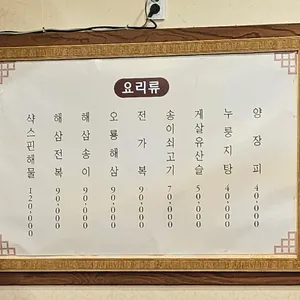 요리류
양장피 40,000
누룽지탕 40,000
게살유산슬 50,000
송이쇠고기 70,000
전가복 90,000
오룡해삼 90,000
해삼송이 90,000
해삼전복 90,000
샥스핀해물 120,000